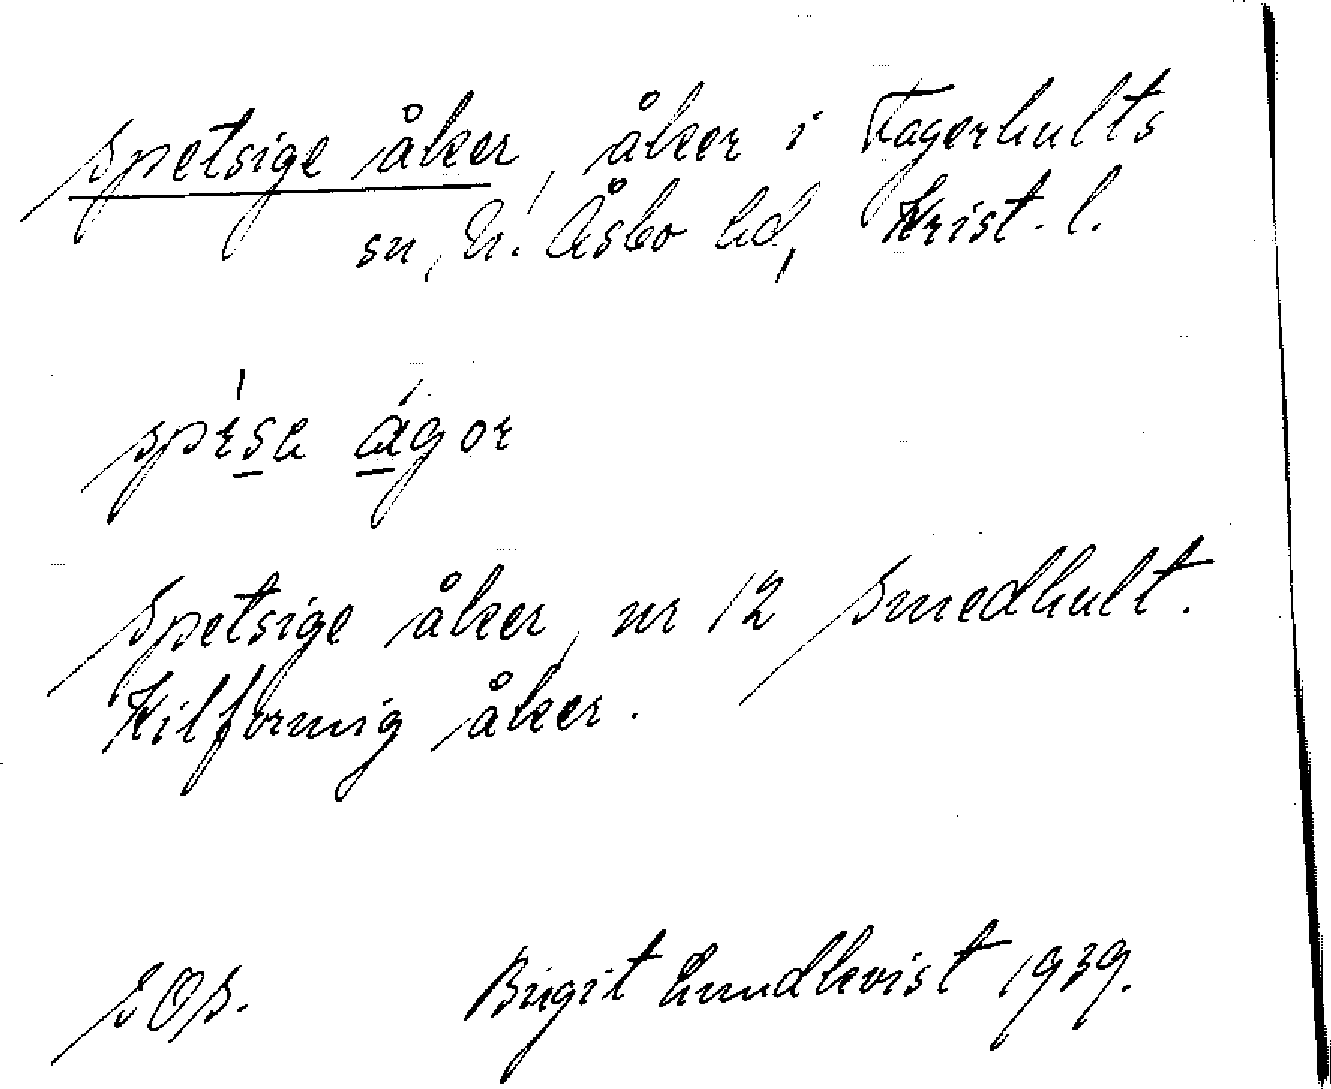 spetsige åker, åker i Fagerhults
sn, N. Åsbo hd, Krist. l.
spetsige åker, nr 12 Smedhult.
Kilformig åker.
Birgit Lundkvist 1939.